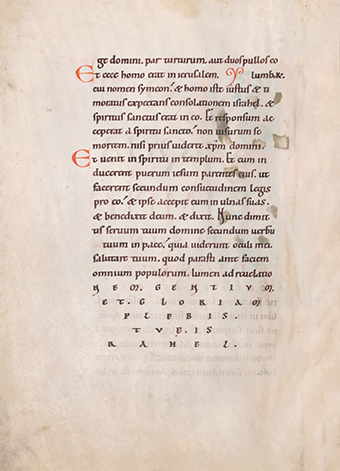 ege domini. par turturum. aut duos pullos co
Et ecce homo erat in ierusalem. lumbaꝝ.
cui nomen symeon. & homo iste iustus & ti
moratus expectans consolationem israhel. &
spiritus sanctus erat in eo. Et responsum ac
ceperat a spiritu sancto. non uisurum se
mortem. nisi prius uideret xpm domini.
Et uenit in spiritu in templum. Et cum in
ducerent puerum iesum parentes eius. ut
facerent secundum consuetudinem legis
pro eo. & ipse accepit eum in ulnas suas.
& benedixit deum. & dixit. Nunc dimit
tis seruum tuum domine secundum uerbū
tuum in pace. quia uiderunt oculi mei
salutare tuum. quod parasti ante faciem
omnium populorum. lumen ad reuelatio
NEM. GENTIUM
ET. GLORIAM
PLEBIS.
TUE. IS
RAHEL.